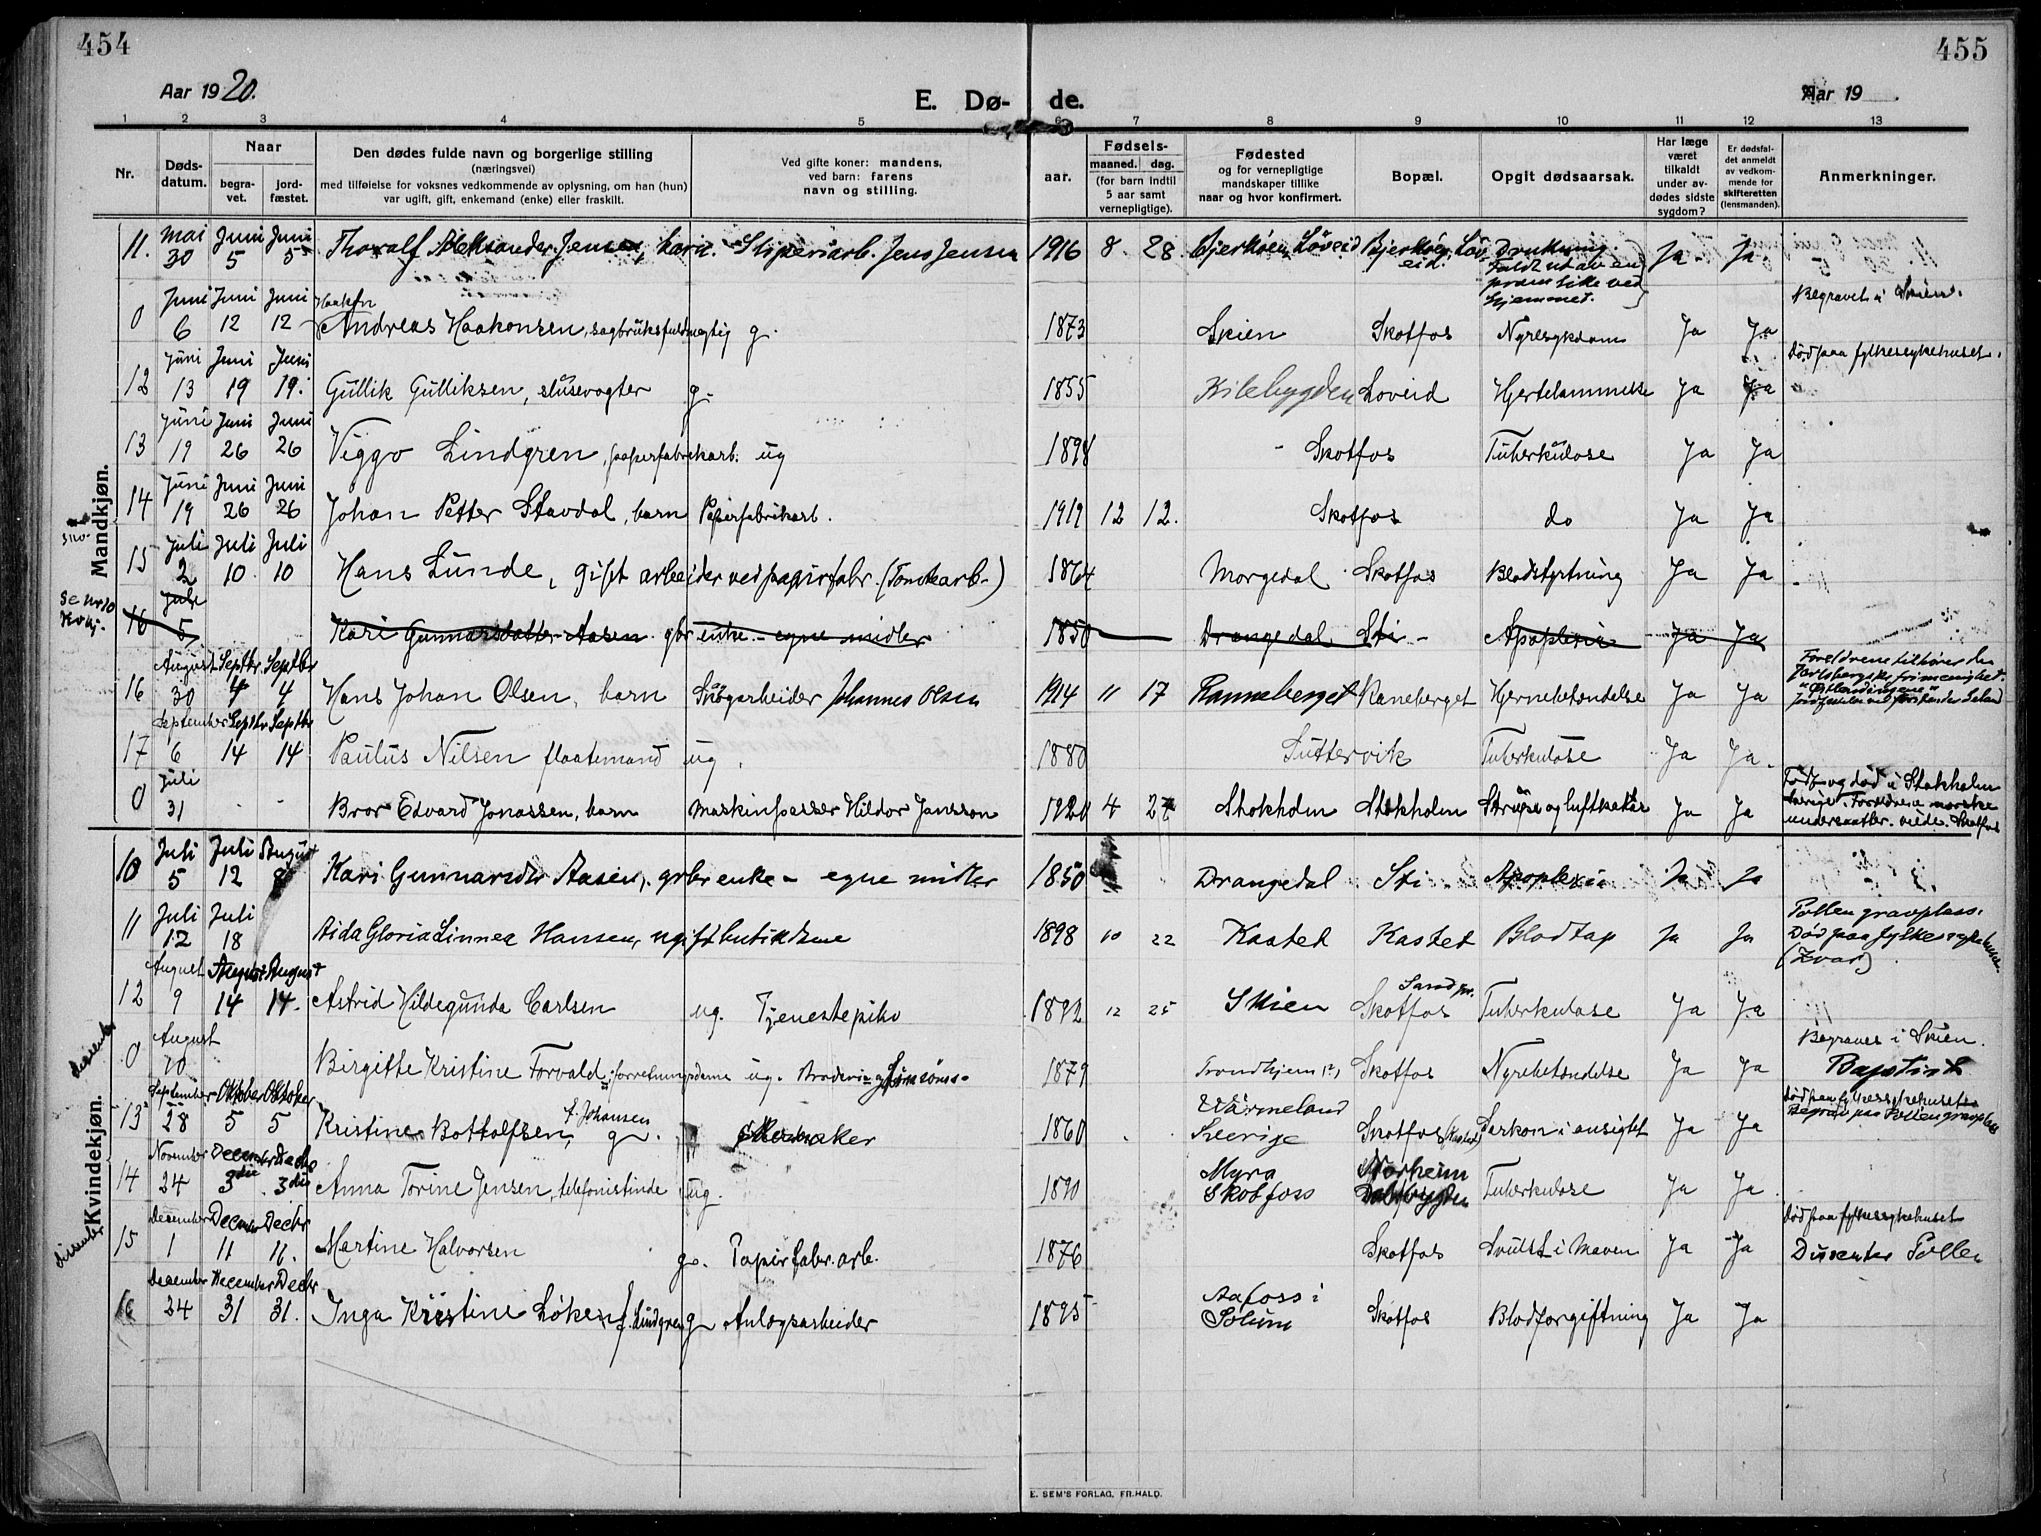 454
455
Aar 1920.
E. Dø- de.
Aar 19
1 2 3 4 5 6 7 8 9 10 11 12 13
Nr.
Døds-datum.
Naar
begra-vet.
jord-fæstet.
Den dødes fulde navn og borgerlige stilling
(næringsvei)
med tilføielse for voksnes vedkommende av oplysning, om han (hun)
var ugift, gift, enkemand (enke) eller fraskilt.
Ved gifte koner: mandens,
ved barn: farens
navn og stilling.
Fødsels-
aar.
maaned. dag.
(for barn indtil
5 aar samt
vernepligtige).
Fødested
og for vernepligtige
mandskaper tillike
naar og hvor konfirmert.
Bopæl.
Opgit dødsaarsak.
Har læge
været
tilkaldt
under av-
dødes sidste
sygdom?
Er dødsfal-
det anmeldt
av vedkom-
mende for
skifteretten
(lensmanden).
Anmerkninger.
Mandkjøn.
11. Mai 30 Juni 5 Juni 5 Thoralf Aleksander Jensen, barn. Sliperiarb. Jens Jensen 1916 8. 28. Bjerkøen, Løveid Bjerkøen, Løv-eid. Drukning. Faldt ut av en pram like ved hjemmet. Ja Ja
0 Juni 6 Juni 12 Juni 12 Haakon Andreas Haakonsen, sagbruksfuldmægtig g. 1873 Skien Skotfos Nyresykdom Ja Ja Begravet i Skien.
12 Juni 13 Juni 19 Juni 19. Gullik Gulliksen, slusevogter g. 1855 Kilebygden Løveid Hjertelammelse Ja Ja Død paa fylkessykehuset.
13 Juni 19 Juni 26 Juni 26 Viggo Lindgren, papirfabrikarb. ug 1898 Skotfos Tuberkulose Ja Ja
14 Juni 19 Juni 26 Juni 26 Johan Petter Stavdal, barn Papirfabrikarb. 1919 12 12. Skotfos do Ja Ja
15 Juli 2 Juli 10 Juli 10 Hans Lunde, gift arbeider ved papirfabr. (Tomtearb.) 1864 Morgedal Skotfos Blodstyrtning Ja Ja
se nr 10 Kvkj.
16 Juli 5 Kari Gunnarsdatter Aasen gbr enke - egne midler 1850 Drangedal Sti - Apoplexi Ja Ja
16 August 30 Septbr 4 Septbr 4 Hans Johan Olsen, barn Sagarbeider Johannes Olsen 1914 11 17 Ranneberget Raneberget Hjernebetændelse Ja Ja Foreldrene tilhører den Jarlsbergske frimenighet.
17 September 6 Septbr 14 Septbr 14 Paulus Nilsen fløatemand ug. 1880 Luttervik Tuberkulose Ja Ja.
0 Juli 31 - - Bror Edvard Jonassen, barn Maskinpasser Hildor Jansson 1920 4 27 Stokholm Stokholm Strupe og luftkatar Ja Ja Født og død i Stokholm Sverige. Foreldrene norske undersaatter. vilde. Skotfos
Kvindekjøn.
10 Juli 5 Juli 12 August 8 Kari Gunnarsdtr Aasen, gbr enke - egne midler 1850 Drangedal Sti Apoplexi Ja Ja
11 Juli 12 Juli 18 Aida Gloria Linnea Hansen, ugift butikdame 1898 10 22 Kastet Kastet Blodtap Ja Ja Tollen gravplass. Død paa fylkessykehuset
12 August 9 August 14 August 14. Astrid Hildegunda Carlsen ug. Tjenestepike 1892 12 25 Skien Skotfos Tuberkulose Ja Ja
dissenter 0 August 20 Birgitte Kristine Forvald, forretningsdame ug. 1879 Trondhjem (?) Skotfos Nyrebetændelse Ja Ja Begraves i Skien. Baptist
13 September 28 Oktober 5 Oktober 5 Kristine Bottolfsen, f. Johansen g. Skomaker 1860 Wärmeland Sverige Skotfos (Kastet) Sarkom i ansigtet Ja Ja Død paa fylkessykehuset Begrav. paa Tollen gravplass
14 November 24 December 3die Decbr 3die Anna Torine Jensen, telefonistinde ug. 1890 Myra Skotfoss Norheim Tuberkulose Ja Ja
dissenter 15 December 1 December 11 Decbr 11. Martine Halvorsen g. Papirfabr. arb. 1876 Skotfos Svulst i Maven Ja Ja Død paa fylkessykehuset Dissenter Tollen
16 December 24 December 31 Decbr 31. Inga Kristine Løken f. Lindgren g Anlægsarbeider 1895 Aafoss i Solum Skotfos Blodforgiftning Ja Ja
E. SEM'S FORLAG, FR.HALD.